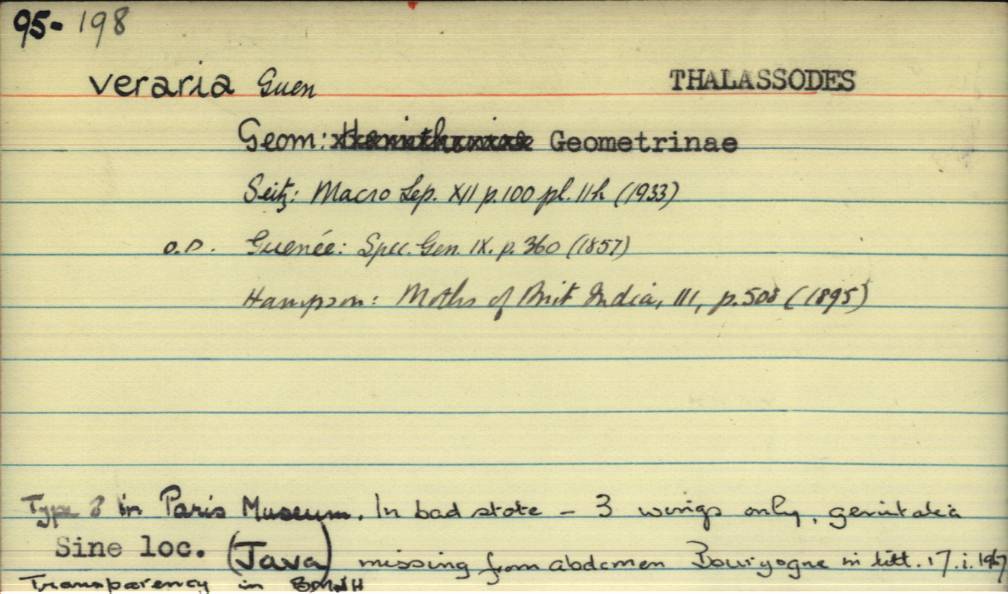 95-198
veraria Guen THALASSODES
Geom: Geometrinae
Seitz: Macro Lep. XII p.100 pl. 11h (1933)
O.D. Guenée: Spec. Gen. IX. p. 360 (1857)
Hampson: Moths of Brit India, III, p.508 (1895)
Type in Paris Museum. In bad state - 3 wings only, genitalia
Sine loc. (Java) missing from abdomen Bourgogne in litt. 17.i.
Transparency in BMNH